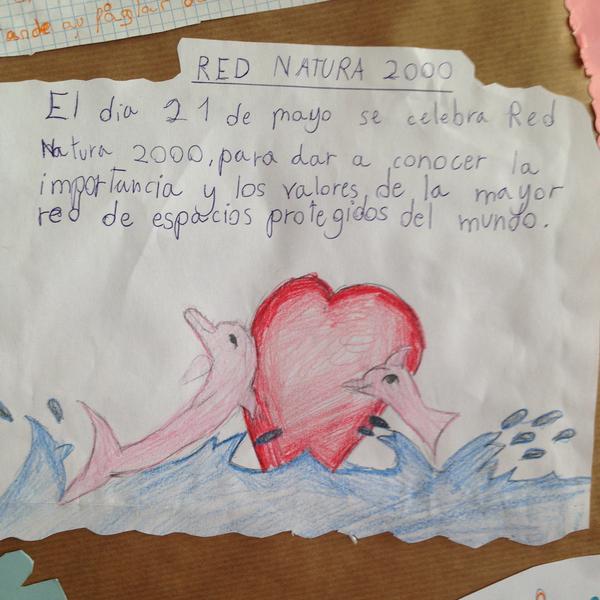 RED NATURA 2000
El dia 21 de mayo se celebra Red
Natura 2000, para dar a conocer la
importancia y los valores de la mayor
red de espacios protegidos del mundo.